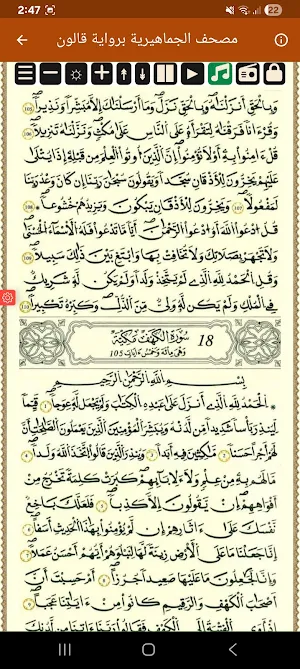 2:47
22
مصحف الجماهيرية برواية قالون
وَبِالْحَقِّ أَنزَلْنَٰهُ وَبِالْحَقِّ نَزَلَ وَمَا أَرْسَلْنَٰكَ إِلَّا مُبَشِّرًا وَنَذِيرًا 105
وَقُرْءَانًا فَرَقْنَٰهُ لِتَقْرَأَهُ عَلَى النَّاسِ عَلَىٰ مُكْثٍ وَنَزَّلْنَٰهُ تَنزِيلًا 106
قُلْ ءَامِنُوا بِهِ أَوْ لَا تُؤْمِنُوا إِنَّ الَّذِينَ أُوتُوا الْعِلْمَ مِن قَبْلِهِ إِذَا يُتْلَىٰ
عَلَيْهِمْ يَخِرُّونَ لِلْأَذْقَانِ سُجَّدًا وَيَقُولُونَ سُبْحَٰنَ رَبِّنَا إِن كَانَ وَعْدُ رَبِّنَا
لَمَفْعُولًا 107 وَيَخِرُّونَ لِلْأَذْقَانِ يَبْكُونَ وَيَزِيدُهُمْ خُشُوعًا 108
قُلُ ادْعُوا اللَّهَ أَوُ ادْعُوا الرَّحْمَٰنَ أَيًّا مَّا تَدْعُوا فَلَهُ الْأَسْمَاءُ الْحُسْنَىٰ
وَلَا تَجْهَرْ بِصَلَاتِكَ وَلَا تُخَافِتْ بِهَا وَابْتَغِ بَيْنَ ذَٰلِكَ سَبِيلًا 109
وَقُلِ الْحَمْدُ لِلَّهِ الَّذِي لَمْ يَتَّخِذْ وَلَدًا وَلَمْ يَكُن لَّهُ شَرِيكٌ
فِي الْمُلْكِ وَلَمْ يَكُن لَّهُ وَلِيٌّ مِّنَ الذُّلِّ وَكَبِّرْهُ تَكْبِيرًا
18 سُورَةُ الْكَهْفِ مَكِّيَّة
وَهِيَ مِائَة وَخَمْس ءَايَات 105
بِسْمِ اللَّهِ الرَّحْمَٰنِ الرَّحِيمِ
الْحَمْدُ لِلَّهِ الَّذِي أَنزَلَ عَلَىٰ عَبْدِهِ الْكِتَٰبَ وَلَمْ يَجْعَل لَّهُ عِوَجًا 1 قَيِّمًا
لِّيُنذِرَ بَأْسًا شَدِيدًا مِّن لَّدُنْهُ وَيُبَشِّرَ الْمُؤْمِنِينَ الَّذِينَ يَعْمَلُونَ الصَّٰلِحَٰتِ أَنَّ
لَهُمْ أَجْرًا حَسَنًا 2 مَّٰكِثِينَ فِيهِ أَبَدًا 3 وَيُنذِرَ الَّذِينَ قَالُوا اتَّخَذَ اللَّهُ وَلَدًا 4
مَّا لَهُم بِهِ مِنْ عِلْمٍ وَلَا لِآبَائِهِمْ كَبُرَتْ كَلِمَةً تَخْرُجُ مِنْ
أَفْوَٰهِهِمْ إِن يَقُولُونَ إِلَّا كَذِبًا 5 فَلَعَلَّكَ بَٰخِعٌ
نَّفْسَكَ عَلَىٰ ءَاثَٰرِهِمْ إِن لَّمْ يُؤْمِنُوا بِهَٰذَا الْحَدِيثِ أَسَفًا 6
إِنَّا جَعَلْنَا مَا عَلَى الْأَرْضِ زِينَةً لَّهَا لِنَبْلُوَهُمْ أَيُّهُمْ أَحْسَنُ عَمَلًا 7
وَإِنَّا لَجَٰعِلُونَ مَا عَلَيْهَا صَعِيدًا جُرُزًا 8 أَمْ حَسِبْتَ أَنَّ
أَصْحَٰبَ الْكَهْفِ وَالرَّقِيمِ كَانُوا مِنْ ءَايَٰتِنَا عَجَبًا 9